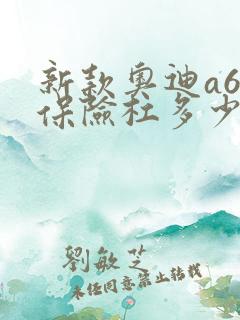 新款奥迪a6
保險杠多少
劉敏芝
未经同意禁止转载